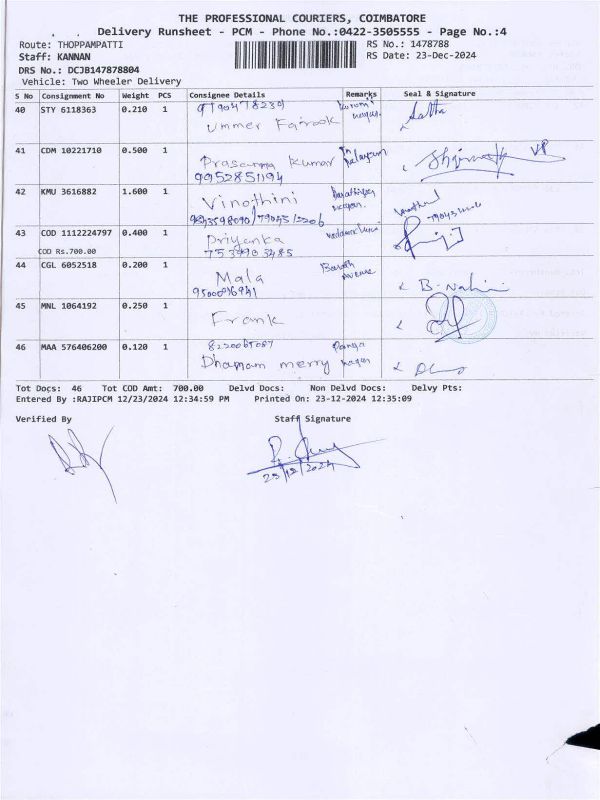 THE PROFESSIONAL COURIERS, COIMBATORE
Delivery Runsheet - PCM - Phone No.:0422-3505555 - Page No.:4
Route: THOPPAMPATTI RS No.: 1478788
Staff: KANNAN RS Date: 23-Dec-2024
DRS No.: DCJB147878804
Vehicle: Two Wheeler Delivery
S No Consignment No Weight PCS Consignee Details Remarks Seal & Signature
40 STY 6118363 0.210 1
Ummer Fairook nagar
41 CDM 10221710 0.500 1
Prasanna Kumar
9952851194
42 KMU 3616882 1.600 1
Vinothini nagar
43 COD 1112224797 0.400 1 Priyanka
COD Rs.700.00 7539903485
44 CGL 6052518 0.200 1 Barath Avenue
Mala B. Nalini
45 MNL 1064192 0.250 1
Frank
46 MAA 576406200 0.120 1
merry nagar
Tot Docs: 46 Tot COD Amt: 700.00 Delvd Docs: Non Delvd Docs: Delvy Pts:
Entered By :RAJIPCM 12/23/2024 12:34:59 PM Printed On: 23-12-2024 12:35:09
Verified By Staff Signature
23/12/2024